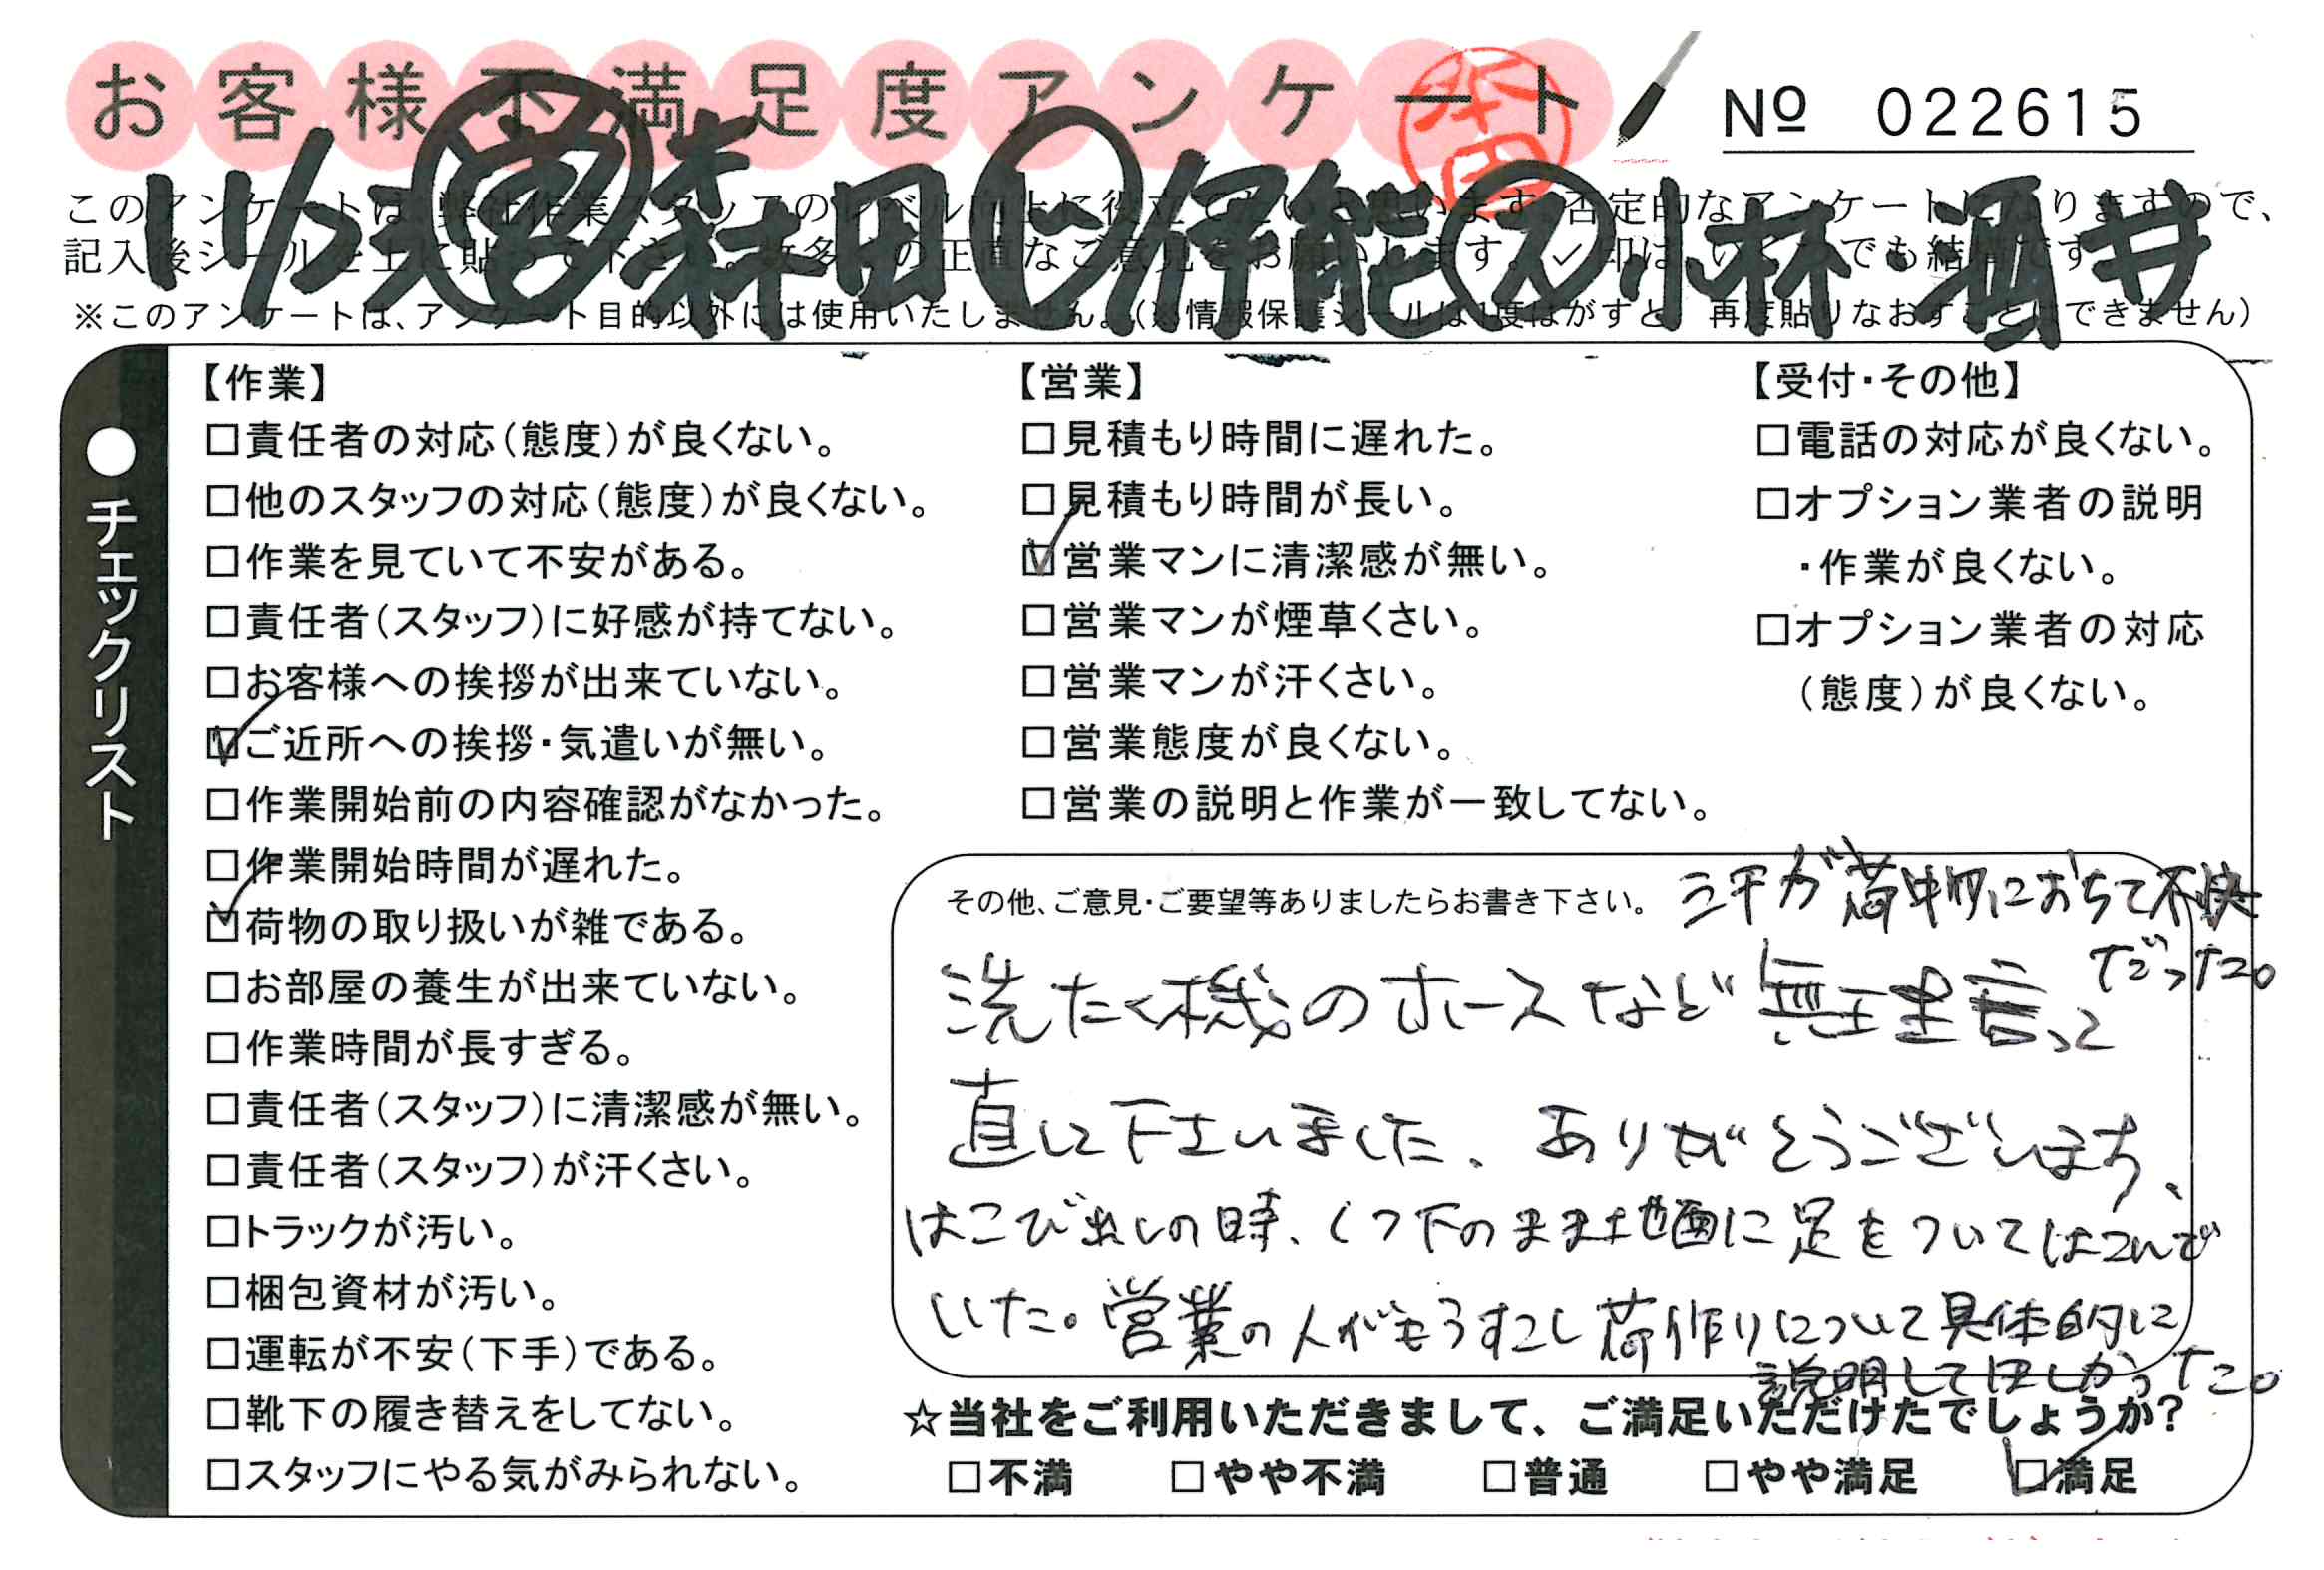 お客様不満足度アンケート
№ 022615
本田
11/23 営 森田 リ 伊能 ス 小林・酒井
このアンケートは、弊社作業スタッフのレベル向上に役立てたいと思います。否定的なアンケートになりますので、
記入後シールを上に貼って下さい。数多くの正直なご意見をお願いします。✓印は、いくつでも結構です
※このアンケートは、アンケート目的以外には使用いたしません。(※情報保護シールは1度はがすと、再度貼りなおすことはできません)
●チェックリスト
【作業】
□責任者の対応(態度)が良くない。
□他のスタッフの対応(態度)が良くない。
□作業を見ていて不安がある。
□責任者(スタッフ)に好感が持てない。
□お客様への挨拶が出来ていない。
☑ご近所への挨拶・気遣いが無い。
□作業開始前の内容確認がなかった。
□作業開始時間が遅れた。
☑荷物の取り扱いが雑である。
□お部屋の養生が出来ていない。
□作業時間が長すぎる。
□責任者(スタッフ)に清潔感が無い。
□責任者(スタッフ)が汗くさい。
□トラックが汚い。
□梱包資材が汚い。
□運転が不安(下手)である。
□靴下の履き替えをしてない。
□スタッフにやる気がみられない。
【営業】
□見積もり時間に遅れた。
□見積もり時間が長い。
☑営業マンに清潔感が無い。
□営業マンが煙草くさい。
□営業マンが汗くさい。
□営業態度が良くない。
□営業の説明と作業が一致してない。
【受付・その他】
□電話の対応が良くない。
□オプション業者の説明
・作業が良くない。
□オプション業者の対応
(態度)が良くない。
その他、ご意見・ご要望等ありましたらお書き下さい。
が荷物におちて不快
だった。
洗たく機のホースなど無理言って
直して下さいました、ありがとうございます、
はこび出しの時、くつ下のまま地面に足をついてはこんで
いた。営業の人がもうすこし荷作りについて具体的に
説明してほしかった。
☆当社をご利用いただきまして、ご満足いただけたでしょうか?
□不満 □やや不満 □普通 □やや満足 ☑満足